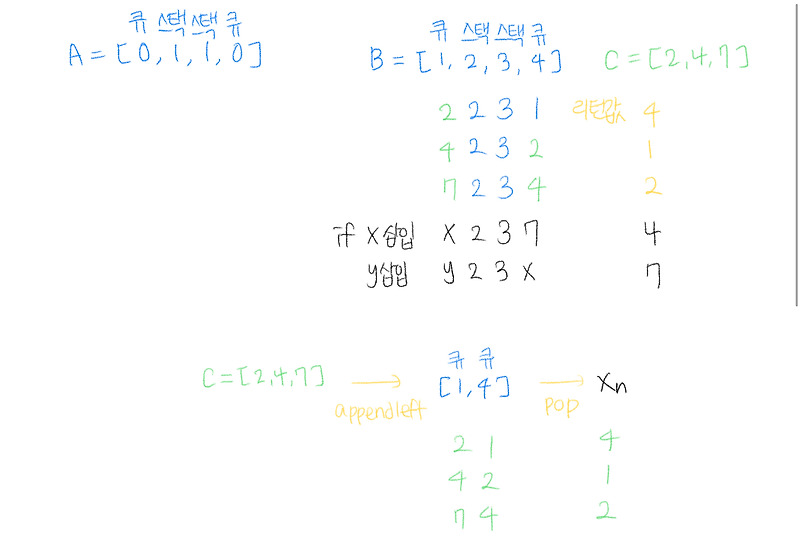 큐 스택 스택 큐
A = [0, 1, 1, 0]
큐 스택 스택 큐
B = [1, 2, 3, 4]
C = [2, 4, 7]
2 2 3 1 리턴값 4
4 2 3 2 1
7 2 3 4 2
if x삽입 x 2 3 7 4
y삽입 y 2 3 x 7
큐 큐
C = [2, 4, 7] → appendleft [1, 4] → pop Xn
2 1 4
4 2 1
7 4 2